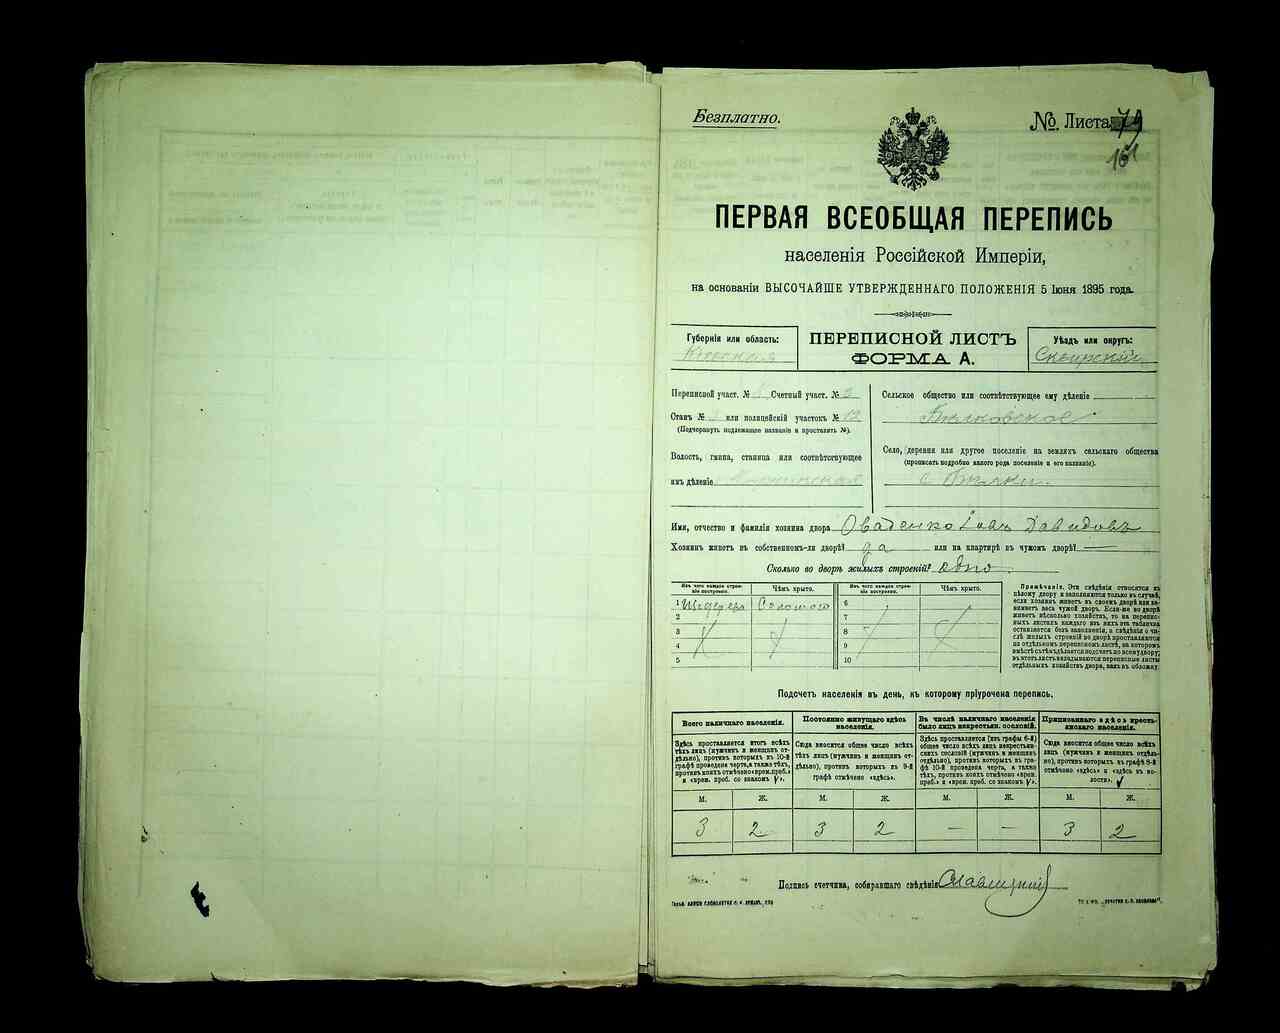 Безплатно.
№. Листа 79
161
ПЕРВАЯ ВСЕОБЩАЯ ПЕРЕПИСЬ
населенія Россійской Имперіи,
на основаніи ВЫСОЧАЙШЕ УТВЕРЖДЕННАГО ПОЛОЖЕНІЯ 5 Іюня 1895 года.
Губернія или область:
Кіевская
ПЕРЕПИСНОЙ ЛИСТЪ
ФОРМА А.
Уѣздъ или округъ:
Сквирскій
Переписной участ. № Счетный участ. № 3
Станъ № или полицейскій участокъ № 12
(Подчеркнуть подлежащее названіе и проставить №).
Волость, гмина, станица или соотвѣтствующее
имъ дѣленіе
Сельское общество или соотвѣтствующее ему дѣленіе
Село, деревня или другое поселеніе на земляхъ сельскаго общества
(прописать подробно какого рода поселеніе и его названіе).
Имя, отчество и фамилія хозяина двора Оваденко Іовъ Давидовъ
Хозяинъ живетъ въ собственномъ-ли дворѣ? да или на квартирѣ въ чужомъ дворѣ? —
Сколько во дворѣ жилыхъ строеній? одно.
Изъ чего каждое строеніе построено.
Чѣмъ крыто.
Изъ чего каждое строеніе построено.
Чѣмъ крыто.
1 Соломою 6
2 7
3 8
4 9
5 10
Примѣчаніе. Эти свѣдѣнія относятся къ
цѣлому двору и заполняются только въ случаѣ,
если хозяинъ живетъ въ своемъ дворѣ или занимаетъ весь чужой дворъ. Если-же во дворѣ
живетъ нѣсколько хозяйствъ, то на переписныхъ листахъ каждаго изъ нихъ эта табличка
оставляется безъ заполненія, а свѣдѣнія о числѣ жилыхъ строеній во дворѣ проставляются
на отдѣльномъ переписномъ листѣ, на которомъ
вмѣстѣ съ тѣмъ дѣлается подсчетъ по всему двору;
въ этотъ листъ вкладываются переписные листы
отдѣльныхъ хозяйствъ двора, какъ въ обложку.
Подсчетъ населенія въ день, къ которому пріурочена перепись.
Всего наличнаго населенія.
Здѣсь проставляется итогъ всѣхъ
тѣхъ лицъ (мужчинъ и женщинъ отдѣльно), противъ которыхъ въ 10-й
графѣ проведена черта, а также тѣхъ,
противъ коихъ отмѣчено «врем. преб.»
и «врем. преб. со знакомъ V».
Постоянно живущаго здѣсь населенія.
Сюда вносится общее число всѣхъ
тѣхъ лицъ (мужчинъ и женщинъ отдѣльно), противъ которыхъ въ 9-й
графѣ отмѣчено «здѣсь».
Въ числѣ наличнаго населенія
было лицъ некрестьян. сословій.
Здѣсь проставляется (изъ графы 6-й)
общее число всѣхъ лицъ некрестьянскихъ сословій (мужчинъ и женщинъ
отдѣльно), противъ которыхъ въ графѣ 10-й проведена черта, а также
тѣхъ, противъ коихъ отмѣчено «врем.
преб.» и «врем. преб. со знакомъ V».
Приписаннаго здѣсь крестьянскаго населенія.
Сюда вносится общее число всѣхъ
лицъ (мужчинъ и женщинъ отдѣльно), противъ которыхъ въ графѣ 8-й
отмѣчено «здѣсь» и «здѣсь въ волости».
М. Ж. М. Ж. М. Ж. М. Ж.
3 2 3 2 — — 3 2
Подпись счетчика, собиравшаго свѣдѣнія